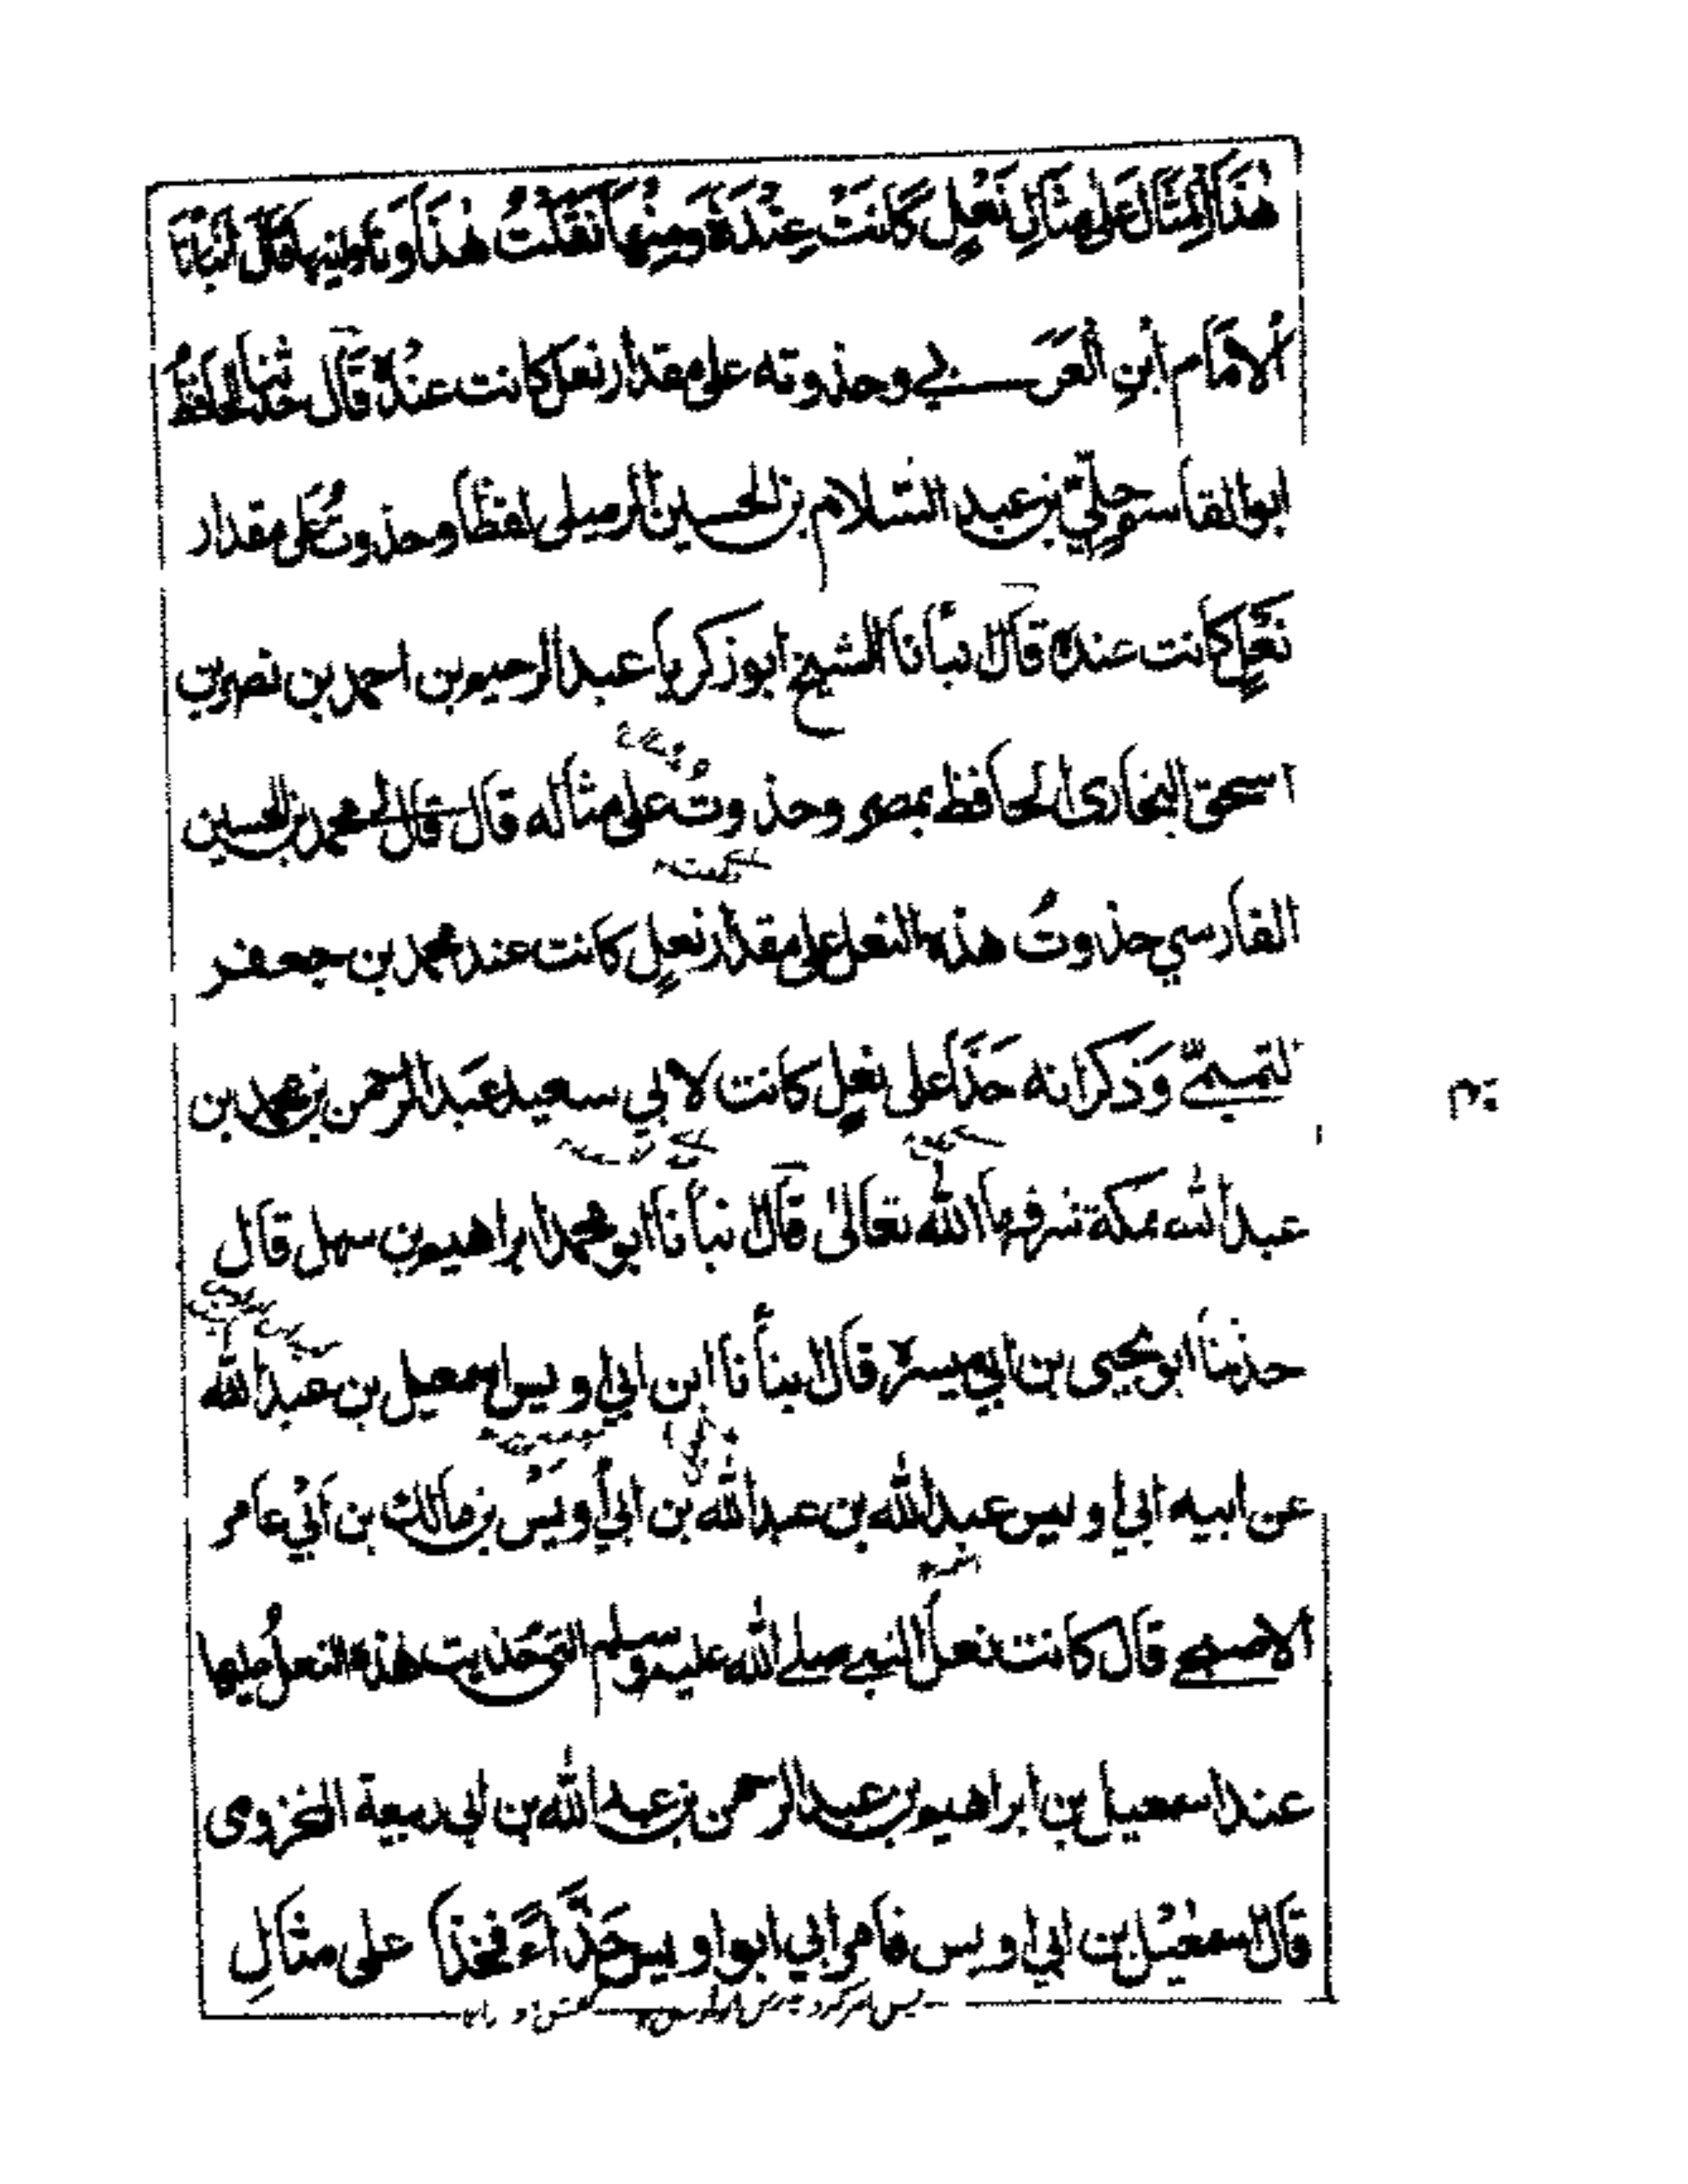 هٰذَا الْمِثَالَ عَلٰى مِثَالِ نَعْلٍ كَانَتْ عِنْدَهٗ وَمِنْهَا نَقَلْتُ هٰذَا وَنَاوَلَنِيهَا قَالَ اَنْبَأَنَا
الامَام ابنِ العَرَبي وحذوته على مقدار نعل كانت عندهٗ قَالَ حدثنا الحافظُ
ابو القاسم مكي بن عبد السّلام بن الحسين الرميلى لفظًا وحذوتُ عَلى مقدار
نَعْلٍ كانت عنده قال نبأنا الشيخ ابو زكريا عبد الرحيم بن احمد بن نصر بن
اسحق البخارى الحافظ بمصر وحذوتُ على مثاله قال قال لى محمد بن الحسين
الفارسي حذوتُ هذه النعل على مقدار نعلٍ كانت عند محمد بن جعفر
لتميمىّ وَذكر انه حَذَا على نعلٍ كانت لابي سعيد عبد الرحمن بن محمد بن
عبد الله بمكة شرفها الله تعالىٰ قال نبأنا ابو محمد ابراهيم بن سهل قال
حدثنا ابو يحيى بن ابي ميسرة قال نبأنا ابن ابي اويس اسمعيل بن عبد الله
عن ابيه ابي اويس عبد الله بن عبد الله بن ابي أويس بن مالك بن ابي عامر
الاصبحى قال كانت نعل النبى صلى الله عليه وسلم التى حُذيت هذه النعل عليها
عند اسمعيل بن ابراهيم بن عبد الرحمن بن عبد الله بن ابي ربيعة المخزومى
قال اسمعيل بن ابي اويس فامر ابي ابو اويس حَذَّاءً فحذا على مثالِ